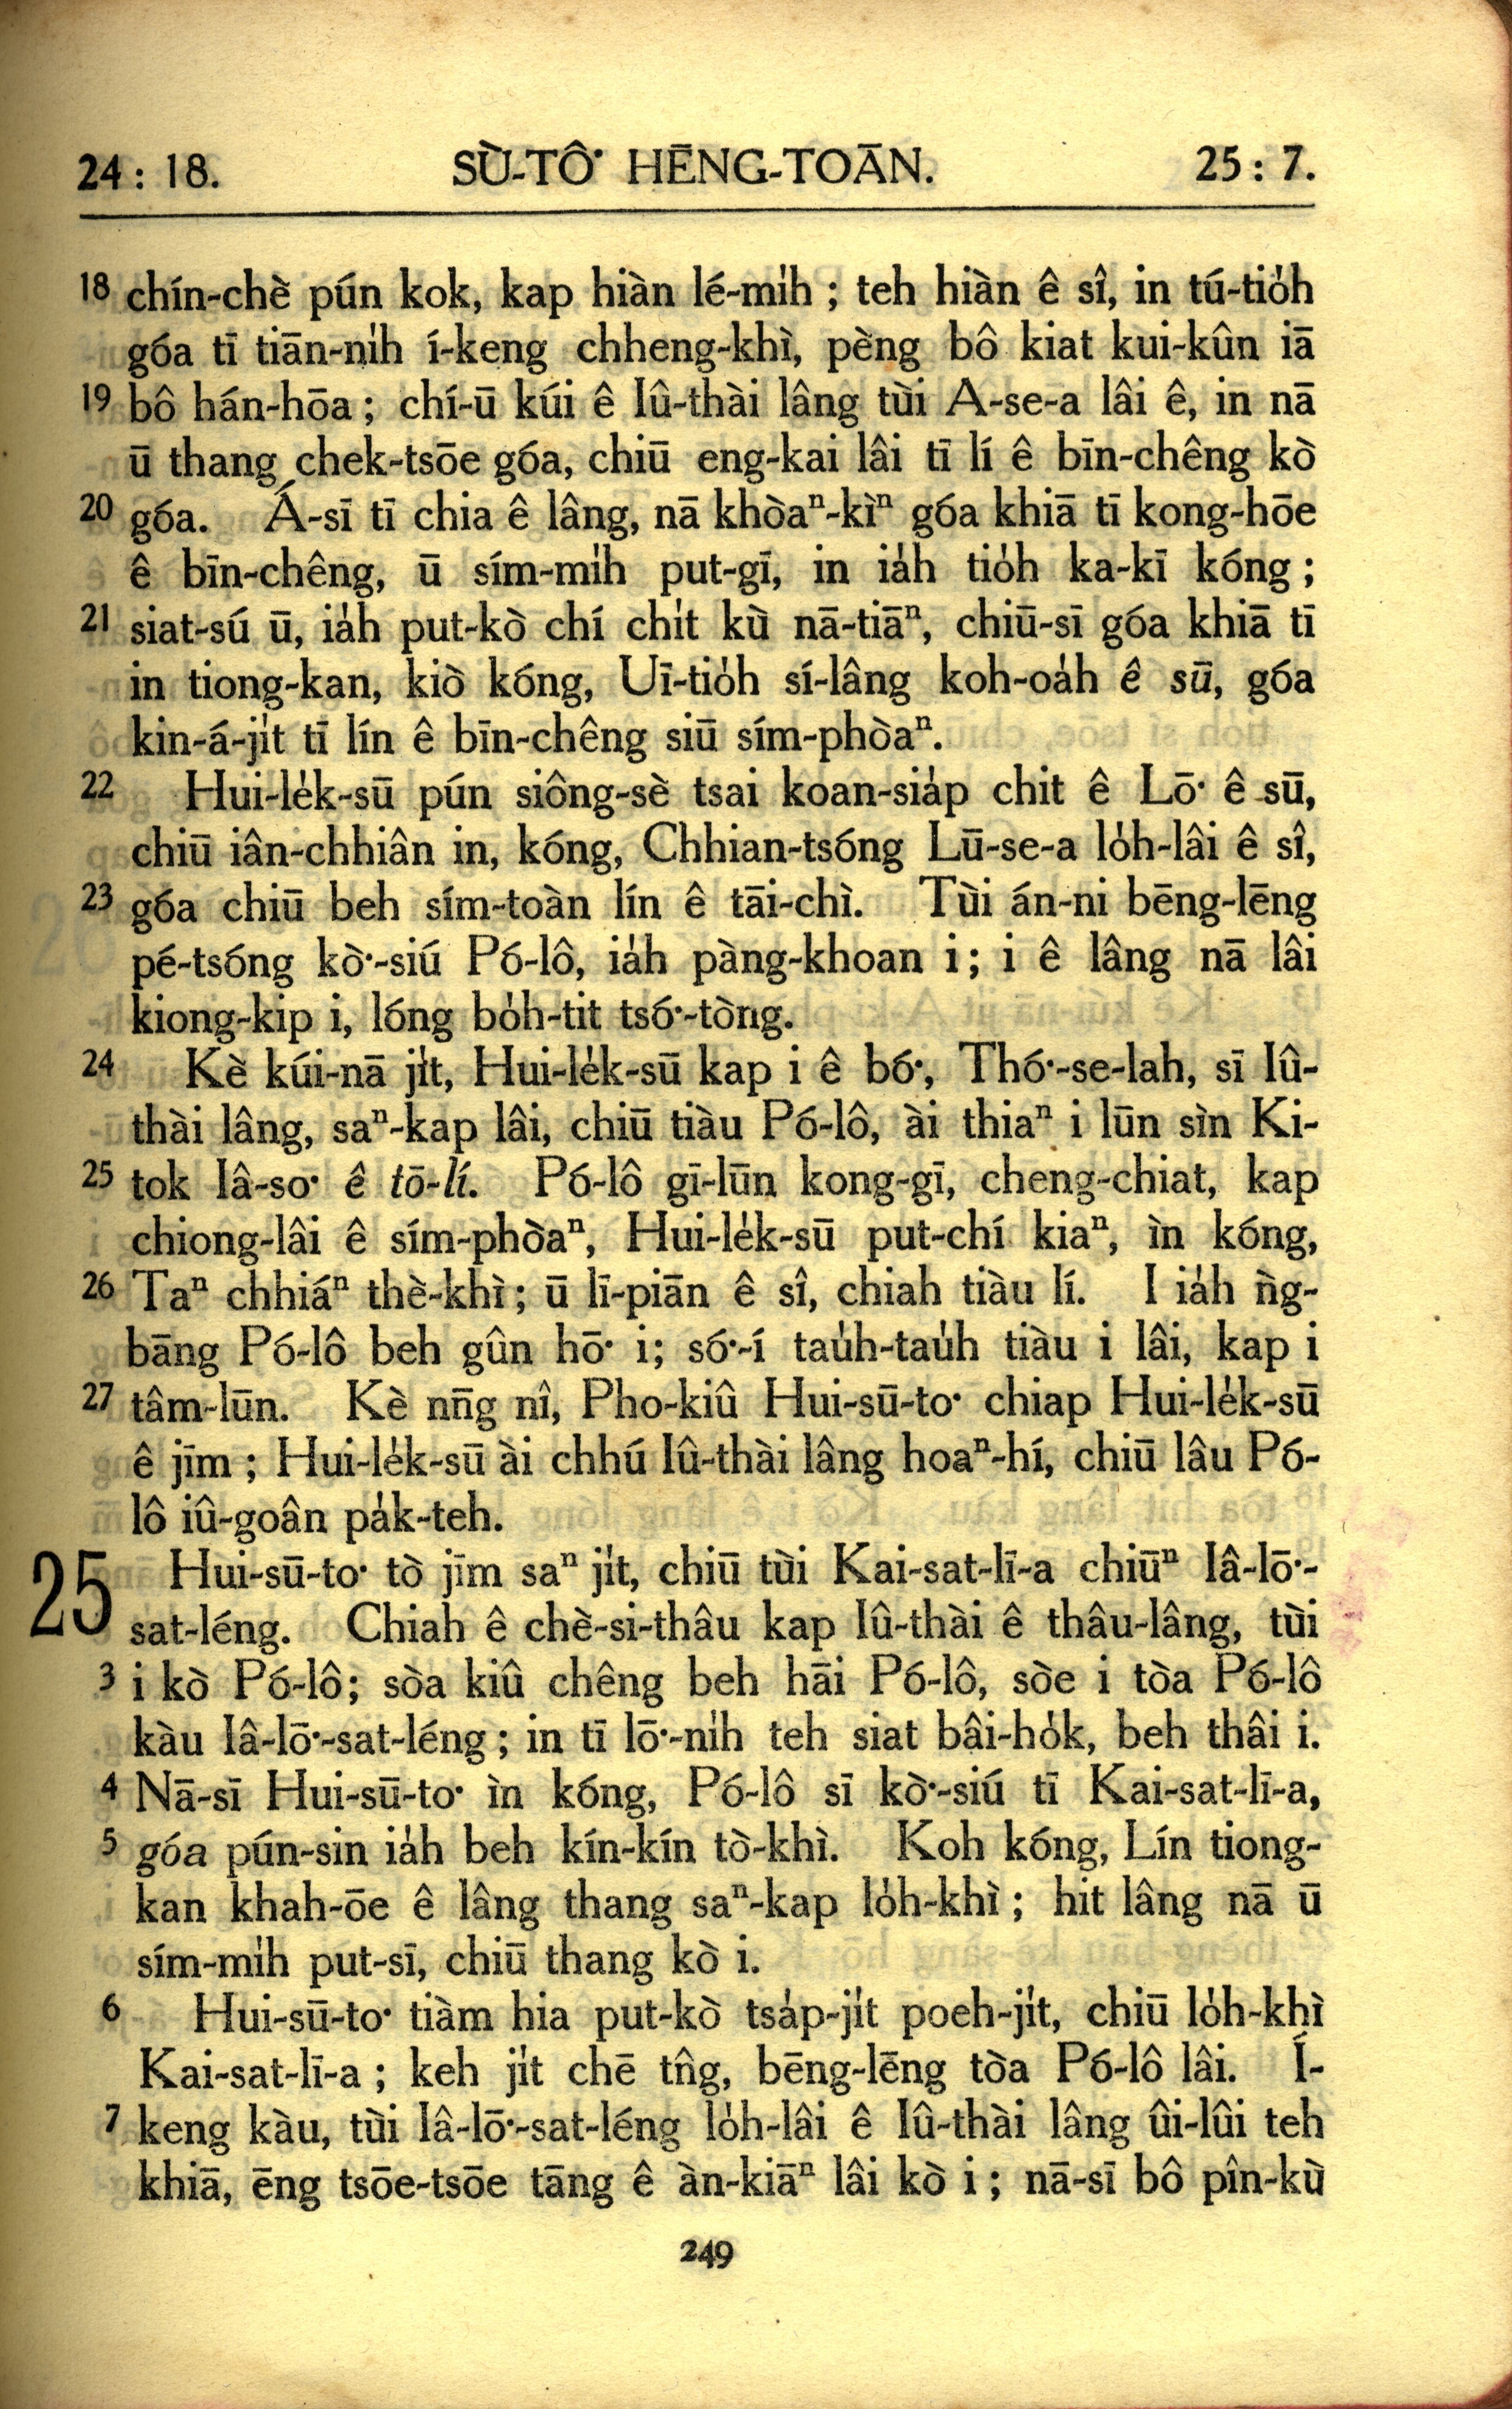 24 : 18. SÙ-TÔ͘ HĒNG-TOĀN. 25 : 7.
18 chín-chè pún kok, kap hiàn lé-mi̍h ; teh hiàn ê sî, in tú-tio̍h
góa tī tiān-ni̍h í-keng chheng-khì, pèng bô kiat kui-kûn iā
19 bô hán-hōa ; chí-ū kúi ê Iû-thài lâng tùi A-se-a lâi ê, in nā
ū thang chek-tsōe góa, chiū eng-kai lâi tī lí ê bīn-chêng kò
20 góa. Á-sī tī chia ê lâng, nā khòaⁿ-kìⁿ góa khiā tī kong-hōe
ê bīn-chêng, ū sím-mi̍h put-gī, in ia̍h tio̍h ka-kī kóng ;
21 siat-sú ū, ia̍h put-kò chí chi̍t kù nā-tiāⁿ, chiū-sī góa khiā tī
in tiong-kan, kiò kóng, Uī-tio̍h sí-lâng koh-oa̍h ê sū, góa
kin-á-ji̍t tī lín ê bīn-chêng siū sím-phòaⁿ.
22 Hui-le̍k-sū pún siông-sè tsai koan-sia̍p chit ê Lō͘ ê sū,
chiū iân-chhiân in, kóng, Chhian-tsóng Lū-se-a lo̍h-lâi ê sî,
23 góa chiū beh sím-toàn lín ê tāi-chì. Tùi án-ni bēng-lēng
pé-tsóng kò͘-siú Pó-lô, ia̍h pàng-khoan i ; i ê lâng nā lâi
kiong-kip i, lóng bo̍h-tit tsó͘-tòng.
24 Kè kúi-nā ji̍t, Hui-le̍k-sū kap i ê bó͘, Thó͘-se-lah, sī Iû-
thài lâng, saⁿ-kap lâi, chiū tiàu Pó-lô, ài thiaⁿ i lūn sìn Ki-
25 tok Iâ-so͘ ê tō-lí. Pó-lô gī-lūn kong-gī, cheng-chiat, kap
chiong-lâi ê sím-phòaⁿ, Hui-le̍k-sū put-chí kiaⁿ, ìn kóng,
26 Taⁿ chhiáⁿ thè-khì ; ū lī-piān ê sî, chiah tiàu lí. I ia̍h ǹg-
bāng Pó-lô beh gûn hō͘ i; só͘-í tau̍h-tau̍h tiàu i lâi, kap i
27 tâm-lūn. Kè nn̄g nî, Pho-kiû Hui-sū-to͘ chiap Hui-le̍k-sū
ê jīm ; Hui-le̍k-sū ài chhú Iû-thài lâng hoaⁿ-hí, chiū lâu Pó-
lô iû-goân pa̍k-teh.
25 Hui-sū-to͘ tò jīm saⁿ ji̍t, chiū tùi Kai-sat-lī-a chiūⁿ Iâ-lō͘-
sat-léng. Chiah ê chè-si-thâu kap Iû-thài ê thâu-lâng, tùi
3 i kò Pó-lô; sòa kiû chêng beh hāi Pó-lô, sòe i tòa Pó-lô
kàu Iâ-lō͘-sat-léng ; in tī lō͘-ni̍h teh siat bâi-ho̍k, beh thâi i.
4 Nā-sī Hui-sū-to͘ ìn kóng, Pó-lô sī kò͘-siú tī Kai-sat-lī-a,
5 góa pún-sin ia̍h beh kín-kín tò-khì. Koh kóng, Lín tiong-
kan khah-ōe ê lâng thang saⁿ-kap lo̍h-khì ; hit lâng nā ū
sím-mi̍h put-sī, chiū thang kò i.
6 Hui-sū-to͘ tiàm hia put-kò tsa̍p-ji̍t poeh-ji̍t, chiū lo̍h-khì
Kai-sat-lī-a ; keh ji̍t chē tn̂g, bēng-lēng tòa Pó-lô lâi. Í-
7 keng kàu, tùi Iâ-lō͘-sat-léng lo̍h-lâi ê Iû-thài lâng ûi-lûi teh
khiā, ēng tsōe-tsōe tāng ê àn-kiāⁿ lâi kò i ; nā-sī bô pîn-kù
249